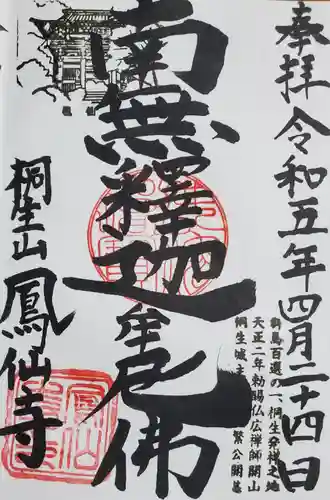 奉拝 令和五年四月二十四日
群馬百選の一、桐生発祥之地
天正二年勅賜仏広禅師開山
桐生城主
繁公開基
南無釋迦牟尼佛
桐生山 鳳仙寺